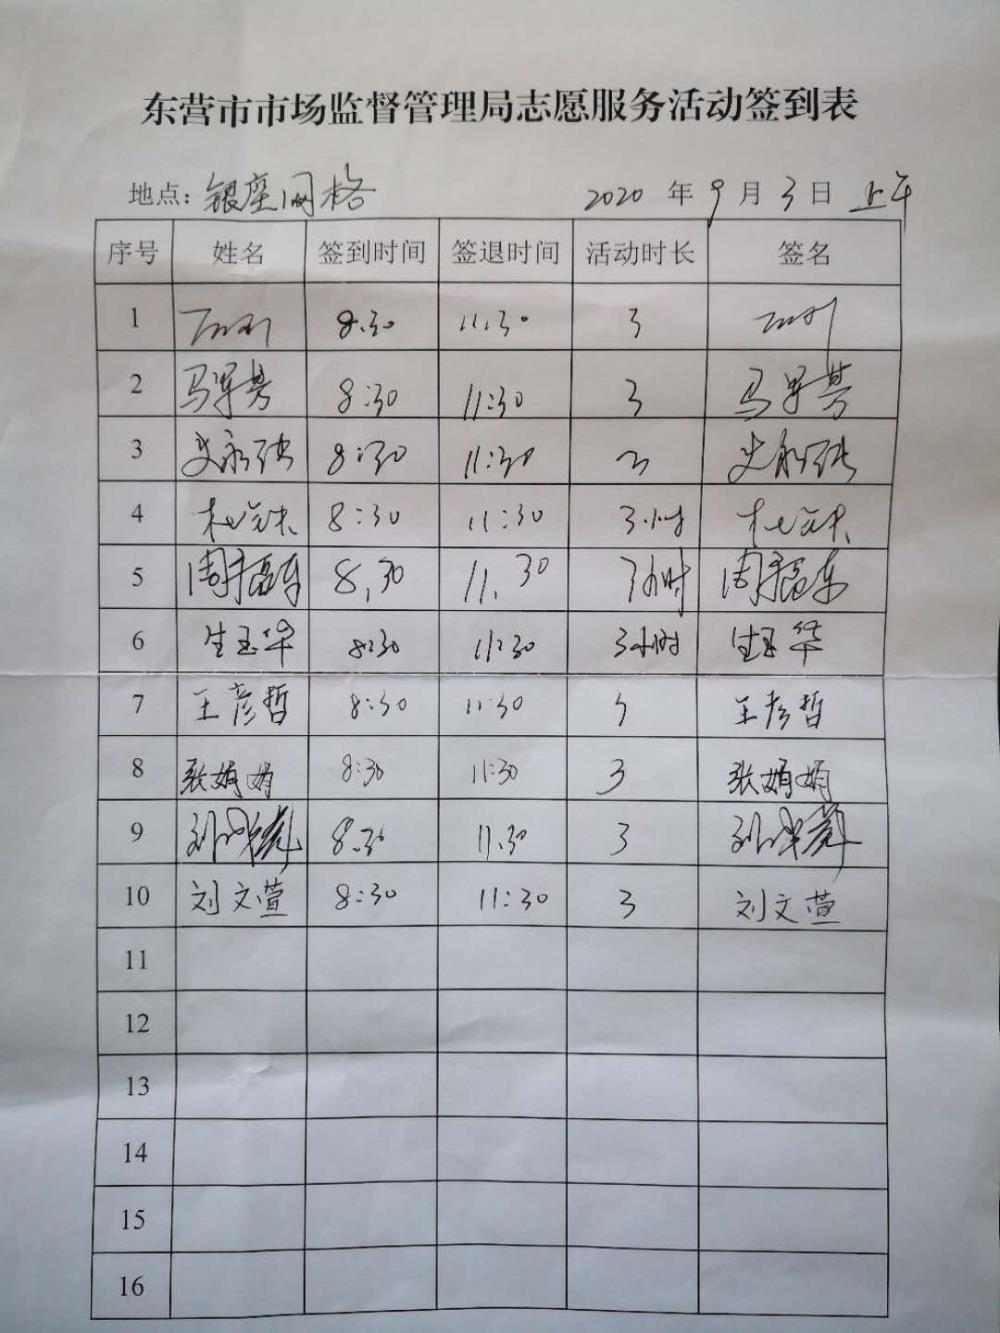 东营市市场监督管理局志愿服务活动签到表
地点: 银座网格 2020 年 9 月 3 日 上午
序号 姓名 签到时间 签退时间 活动时长 签名
1 8:30 11:30 3
2 马军芳 8:30 11:30 3 马军芳
3 8:30 11:30 3
4 8:30 11:30 3小时
5 8:30 11:30 3小时
6 生玉华 8:30 11:30 3小时 生玉华
7 王彦哲 8:30 11:30 3 王彦哲
8 张娟娟 8:30 11:30 3 张娟娟
9 8:30 11:30 3
10 刘文萱 8:30 11:30 3 刘文萱
11
12
13
14
15
16